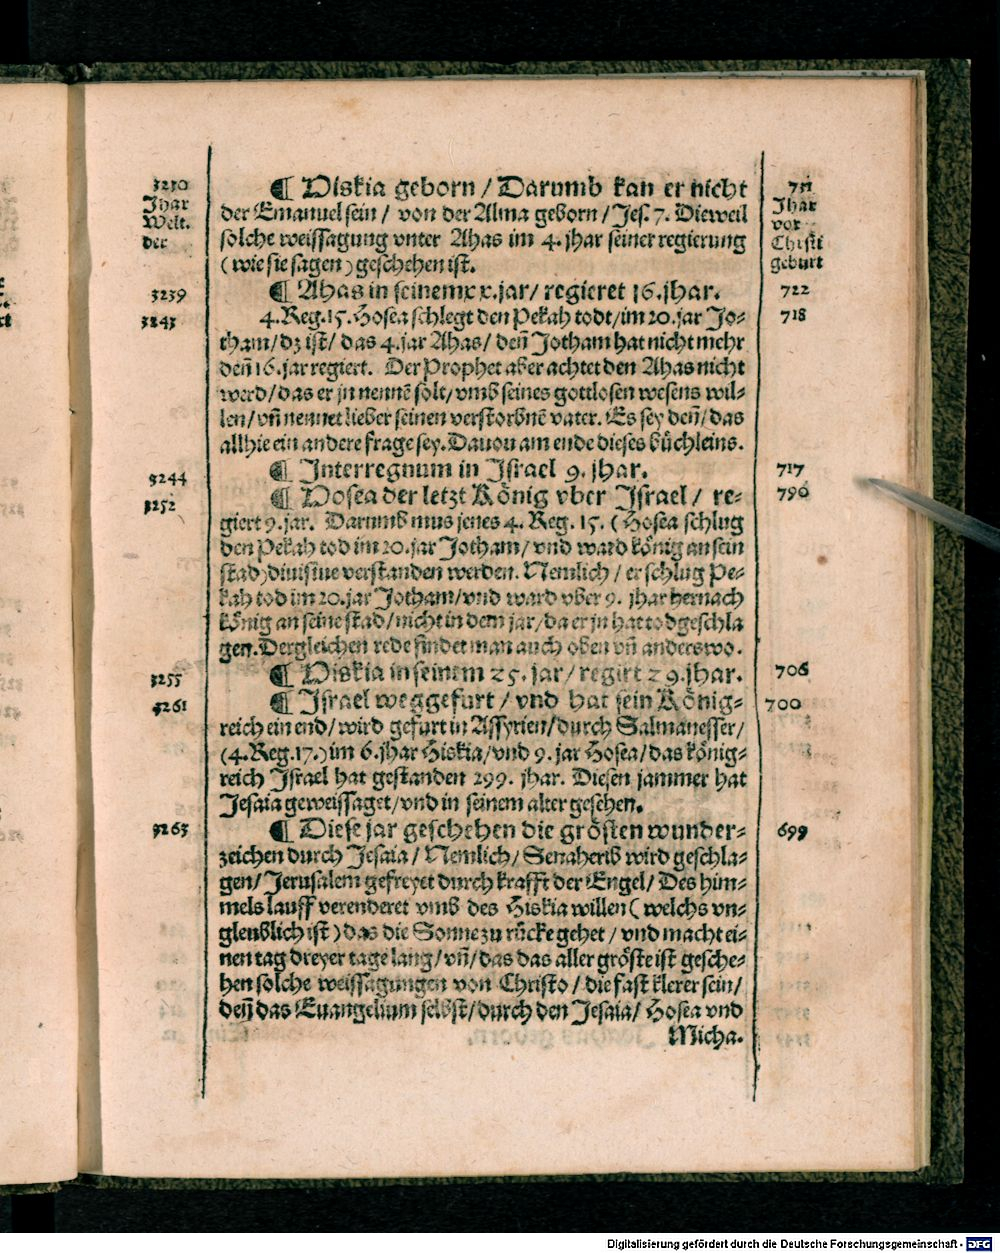 3230
Jhar
Welt.
der
¶ Hiskia geborn / Darumb kan er nicht
der Emanuel sein / von der Alma geborn / Jes. 7. Dieweil
solche weissagung vnter Ahas im 4. jhar seiner regierung
( wie sie sagen ) geschehen ist.
751
Jhar
vor
Christi
geburt
3239 ¶ Ahas in seinem xx. jar / regieret 16. jhar. 722
3243 4. Reg. 15. Hosea schlegt den Pekah todt / im 20. jar Jo= 718
tham / dz ist / das 4. jar Ahas / deñ Jotham hat nicht mehr
deñ 16. jar regiert. Der Prophet aber achtet den Ahas nicht
werd / das er jn nennē solt / vmb seines gottlosen wesens wil=
len / vñ nennet lieber seinen verstorbnē vater. Es sey deñ / das
allhie ein andere frage sey. Dauon am ende dieses büchleins.
3244 ¶ Interregnum in Israel 9. jhar. 717
3252 ¶ Hosea der letzt König vber Israel / re= 790
giert 9. jar. Darumb mus jenes 4. Reg. 15. ( Hosea schlug
den Pekah tod im 20. jar Jotham / vnd ward könig an sein
stad ) diuisiue verstanden werden. Nemlich / er schlug Pe=
kah tod im 20. jar Jotham / vnd ward vber 9. jhar hernach
könig an seine stad / nicht in dem jar / da er jn hat tod geschla
gen. Dergleichen rede findet man auch oben vñ anderswo.
3255 ¶ Hiskia in seinem 25. jar / regirt 29. jhar. 706
3261 ¶ Israel weggefurt / vnd hat sein König= 700
reich ein end / wird gefurt in Assyrien / durch Salmanesser /
(4. Reg. 17.) im 6. jhar Hiskia / vnd 9. jar Hosea / das könig=
reich Israel hat gestanden 299. jhar. Diesen jammer hat
Jesaia geweissaget / vnd in seinem alter gesehen.
3263 ¶ Diese jar geschehen die grösten wunder= 699
zeichen durch Jesaia / Nemlich / Senaherib wird geschla=
gen / Jerusalem gefreyet durch krafft der Engel / Des him=
mels lauff verenderet vmb des Hiskia willen ( welchs vn=
gleublich ist ) das die Sonne zu rücke gehet / vnd macht ei=
nen tag dreyer tage lang / vñ / das das aller gröste ist gesche=
hen solche weissagungen von Christo / die fast klerer sein /
deñ das Euangelium selbst / durch den Jesaia / Hosea vnd
Micha.
Digitalisierung gefördert durch die Deutsche Forschungsgemeinschaft - DFG